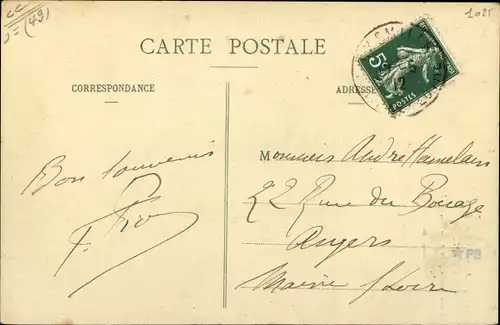 (49)
1025
CARTE POSTALE
CORRESPONDANCE
ADRESSE
5
POSTES
Bon Souvenir
Monsieur André Hamelain
22 Rue du Bocage
Angers
Maine & Loire
PB